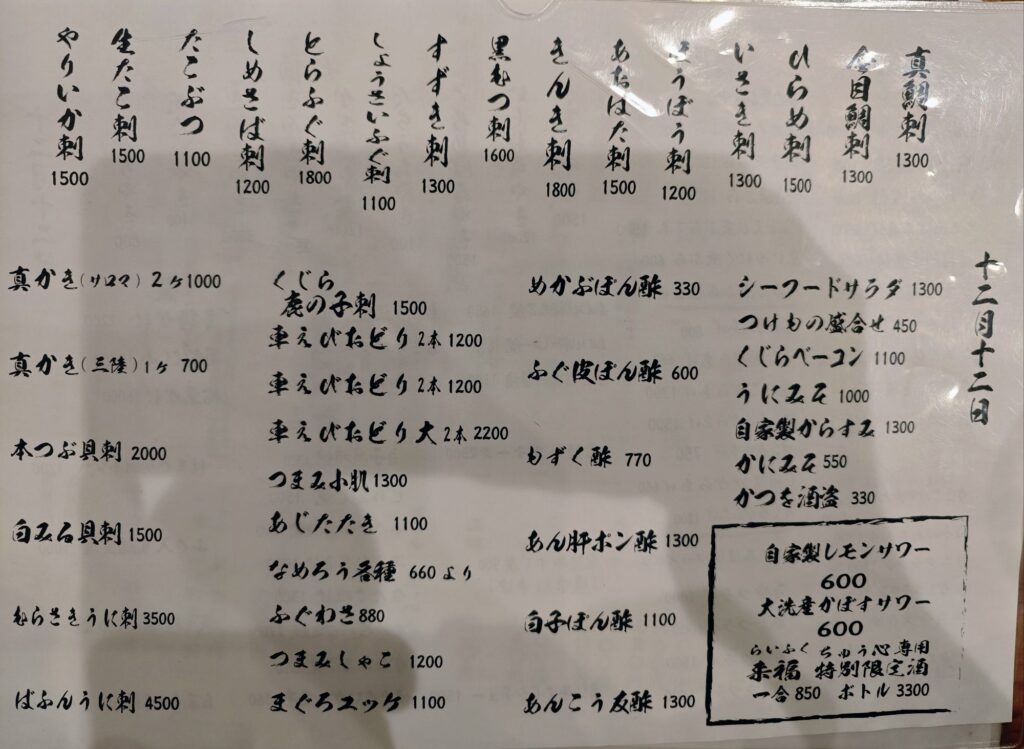 十二月十二日
真鯛刺 1300
金目鯛刺 1300
ひらめ刺 1500
いさき刺 1300
ほうぼう刺 1200
あおはた刺 1500
きんき刺 1800
黒むつ刺 1600
すずき刺 1300
しょうさいふぐ刺 1100
とらふぐ刺 1800
しめさば刺 1200
たこぶつ 1100
生たこ刺 1500
やりいか刺 1500
シーフードサラダ 1300
つけもの盛合せ 450
くじらベーコン 1100
うにみそ 1000
自家製からすみ 1300
かにみそ 550
かつを酒盗 330
自家製レモンサワー
600
大洗産かぼすサワー
600
らいふく ちゅう心専用
来福 特別限定酒
一合850 ボトル3300
めかぶぽん酢 330
ふぐ皮ぽん酢 600
もずく酢 770
あん肝ポン酢 1300
白子ぽん酢 1100
あんこう友酢 1300
くじら
鹿の子刺 1500
車えびおどり 2本 1200
車えびおどり 2本 1200
車えびおどり 大 2本 2200
つまみ小肌 1300
あじたたき 1100
なめろう各種 660より
ふぐわさ 880
つまみしゃこ 1200
まぐろユッケ 1100
真かき(サロマ) 2ヶ 1000
真かき(三陸) 1ヶ 700
本つぶ貝刺 2000
白みる貝刺 1500
むらさきうに刺 3500
ばふんうに刺 4500